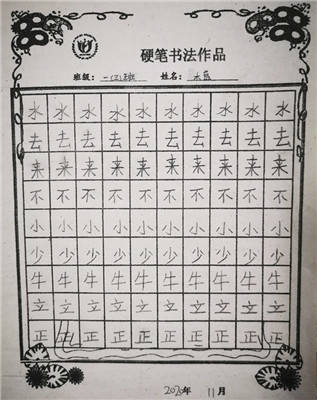 硬笔书法作品
班级：一(2)班 姓名：
水 水 水 水 水 水 水 水 水 水
去 去 去 去 去 去 去 去 去 去
来 来 来 来 来 来 来 来 来 来
不 不 不 不 不 不 不 不 不 不
小 小 小 小 小 小 小 小 小 小
少 少 少 少 少 少 少 少 少 少
牛 牛 牛 牛 牛 牛 牛 牛 牛 牛
立 立 立 立 立 立 立 立 立 立
正 正 正 正 正 正 正 正 正 正
2020年 11月